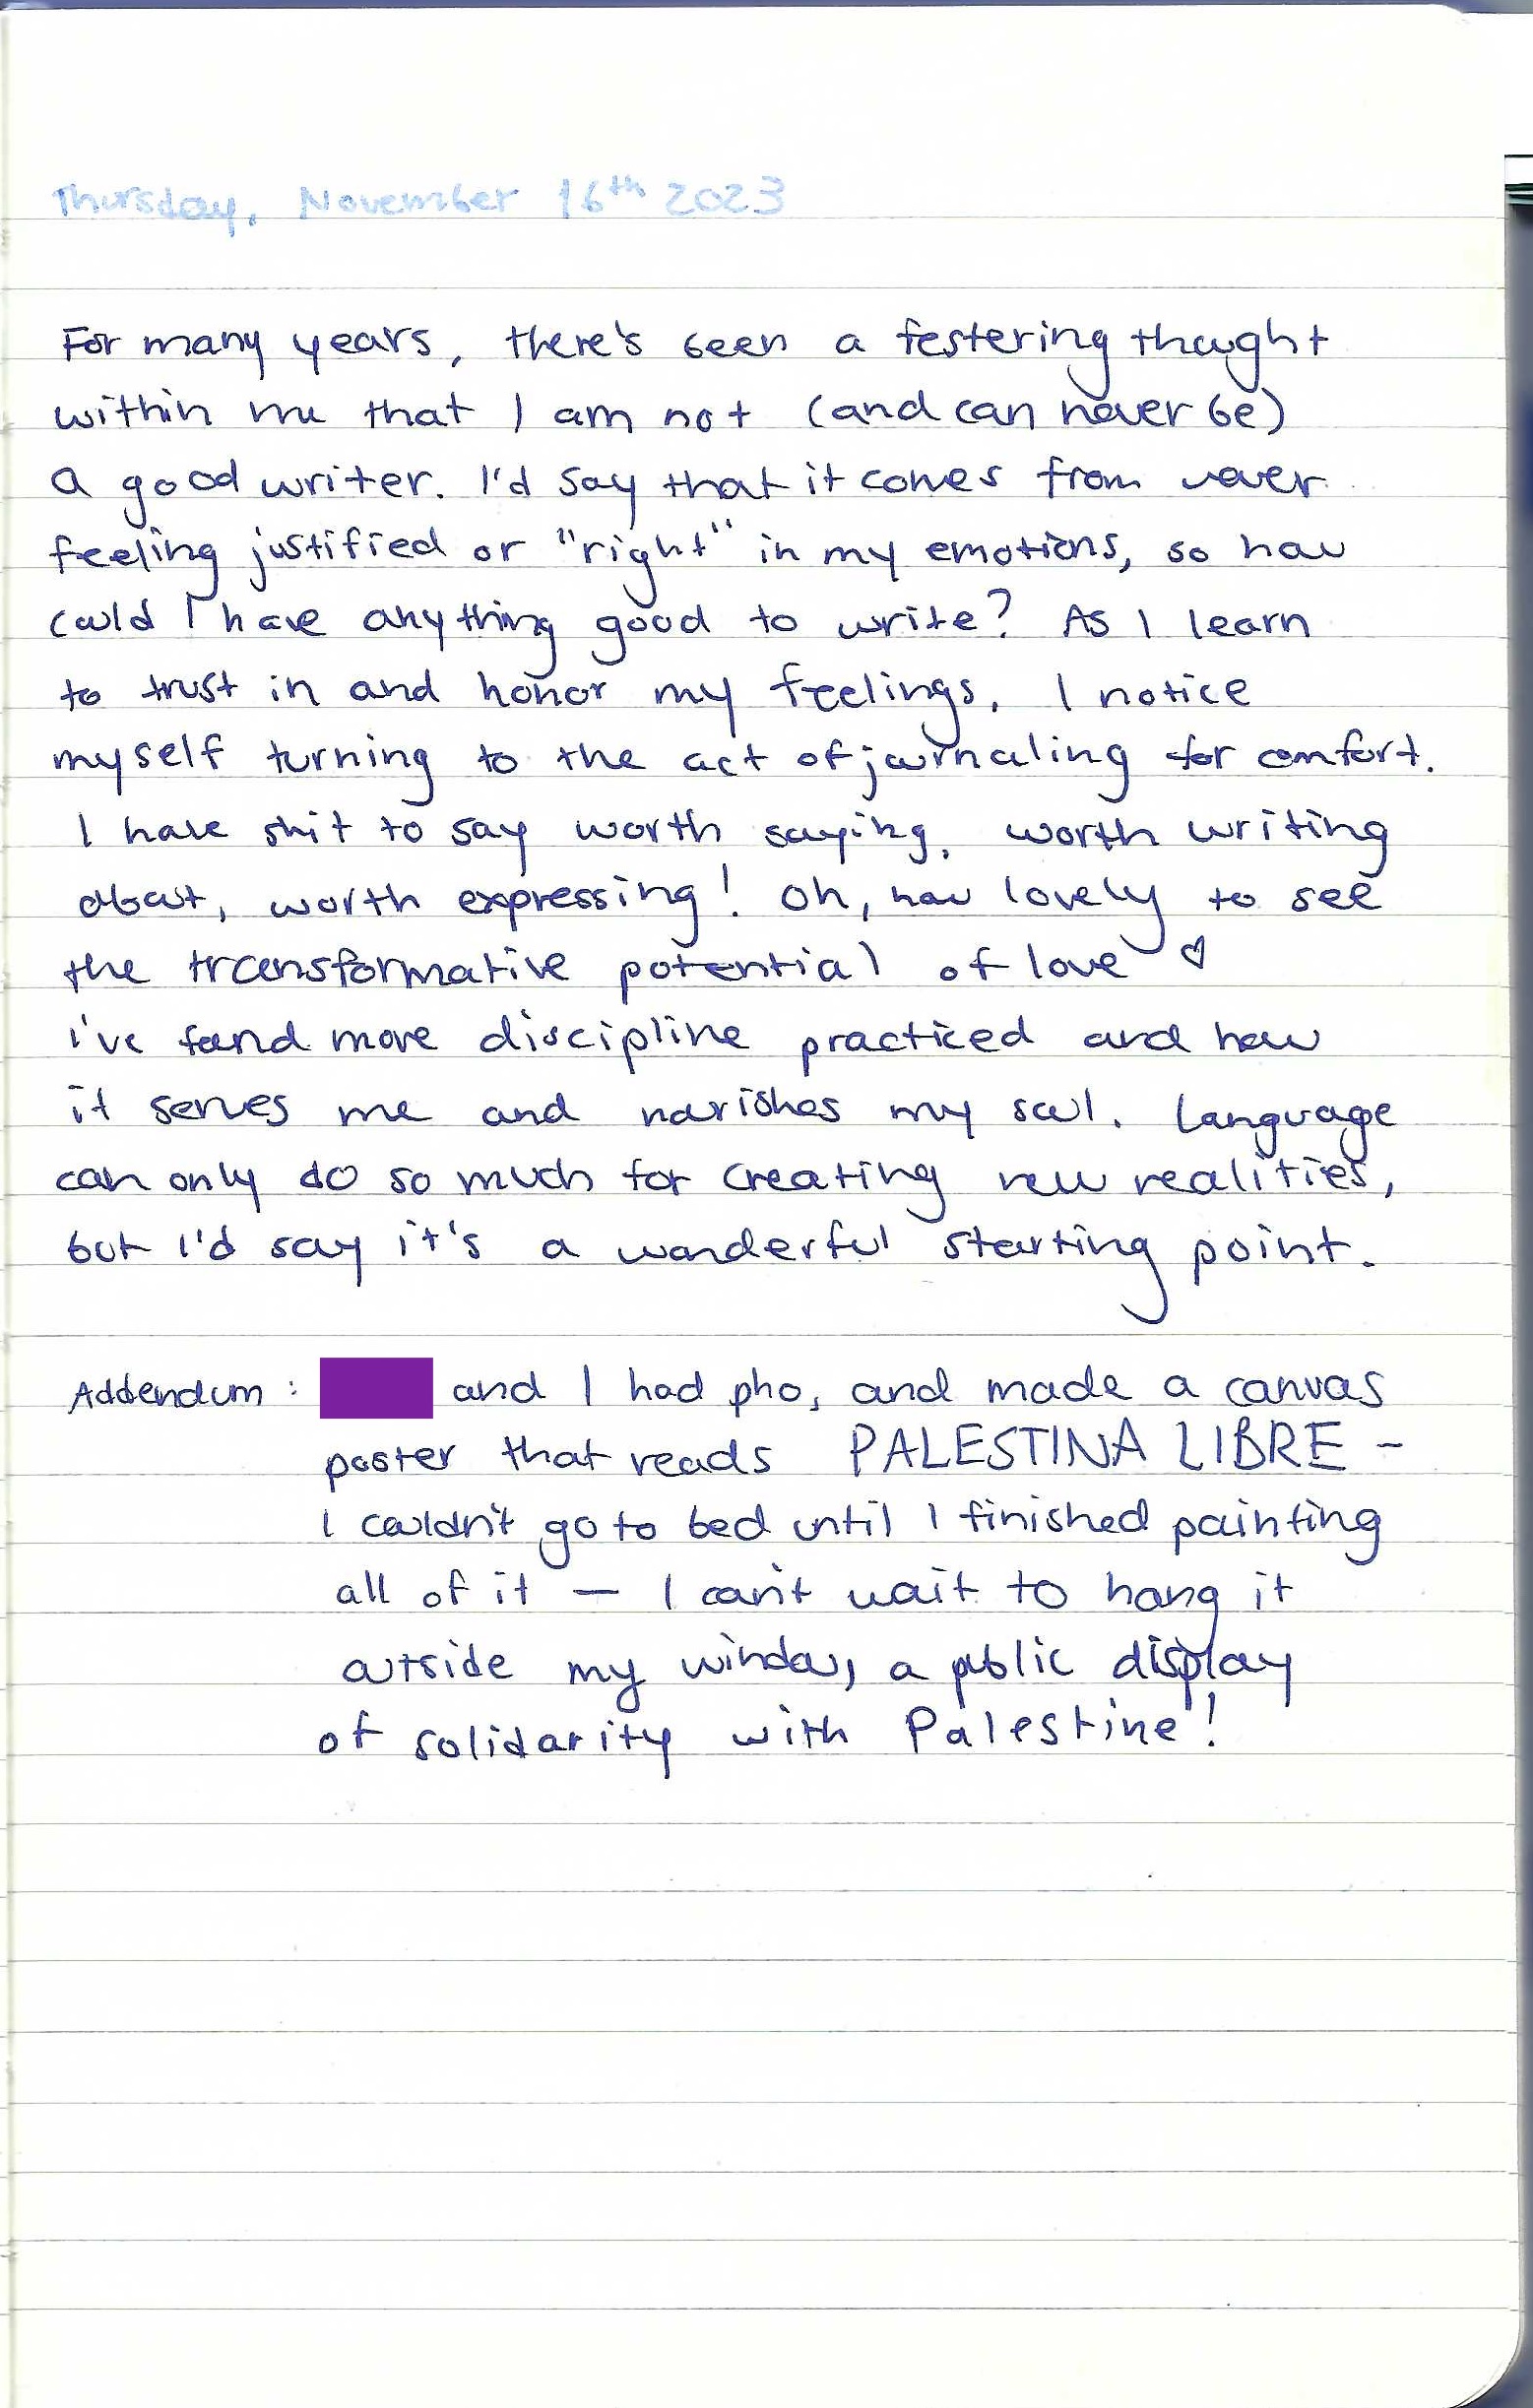 Thursday, November 16th 2023
For many years, there's been a festering thought
within me that I am not (and can never be)
a good writer. I'd say that it comes from never
feeling justified or "right" in my emotions, so how
could I have anything good to write? As I learn
to trust in and honor my feelings, I notice
myself turning to the act of journaling for comfort.
I have shit to say worth saying, worth writing
about, worth expressing! Oh, how lovely to see
the transformative potential of love ♡
I've found more discipline practiced and how
it serves me and nourishes my soul. Language
can only do so much for creating new realities,
but I'd say it's a wonderful starting point.
Addendum: and I had pho, and made a canvas
poster that reads PALESTINA LIBRE -
I couldn't go to bed until I finished painting
all of it — I can't wait to hang it
outside my window, a public display
of solidarity with Palestine!